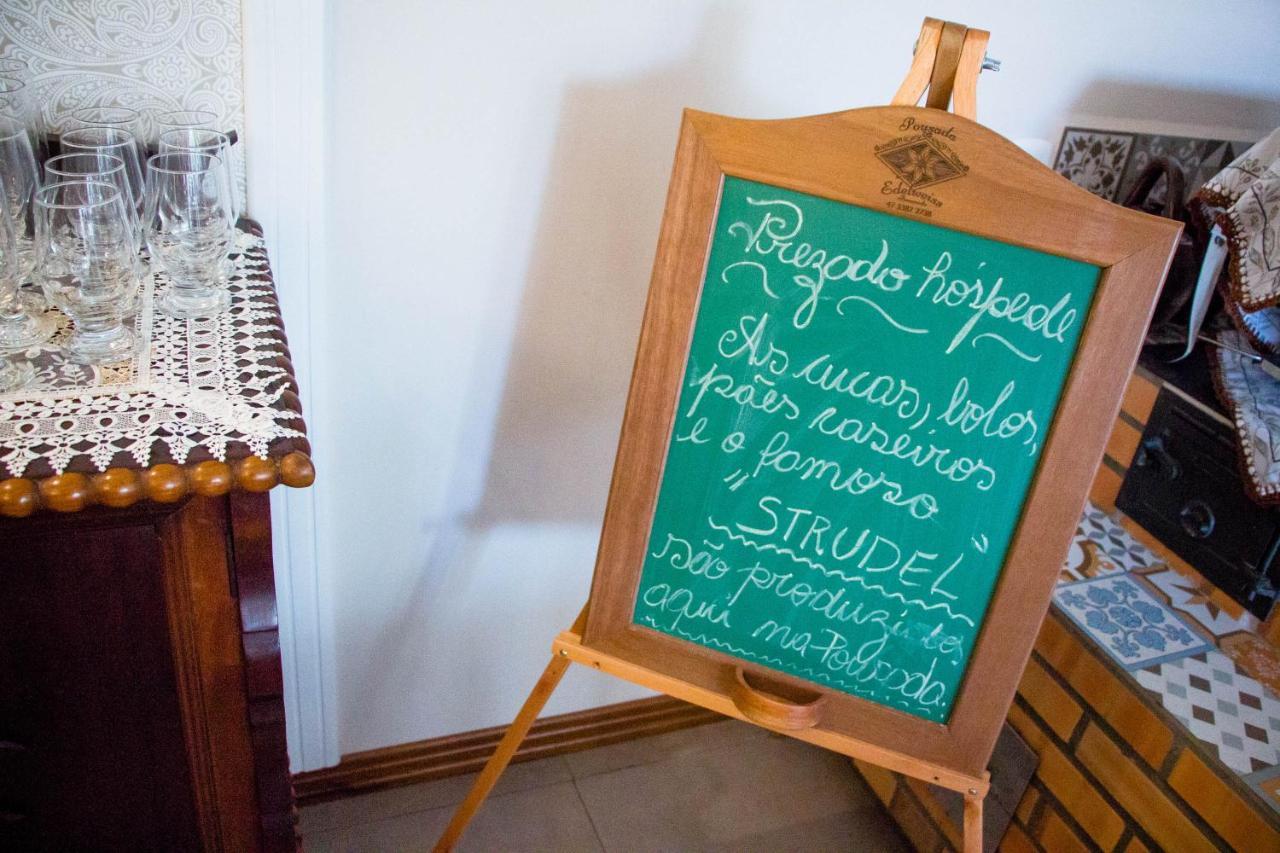 Pouzada
Edelweiss
47 3387 2738
Prezado hóspede
As cucas, bolos,
pães caseiros
e o famoso
"STRUDEL"
são produzidos
aqui na Pouzada.